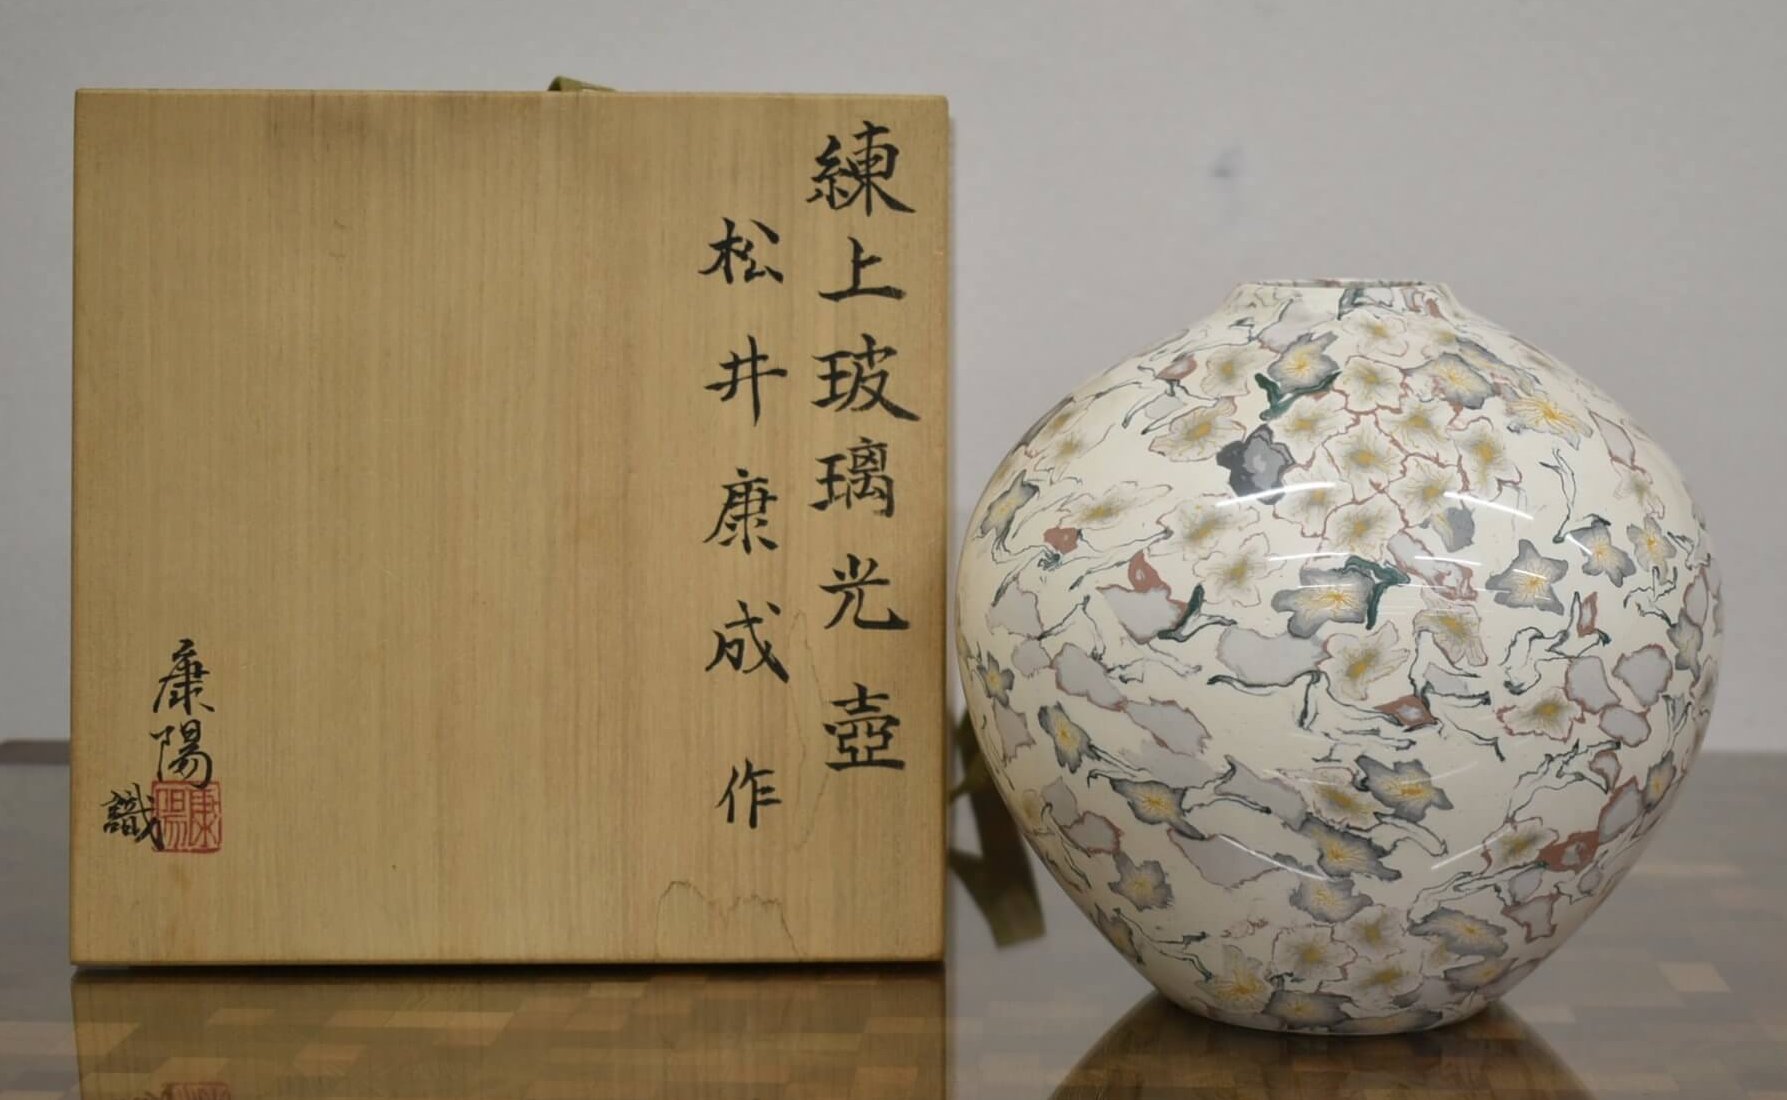 練上玻璃光壺
松井康成作
康陽
識
康陽